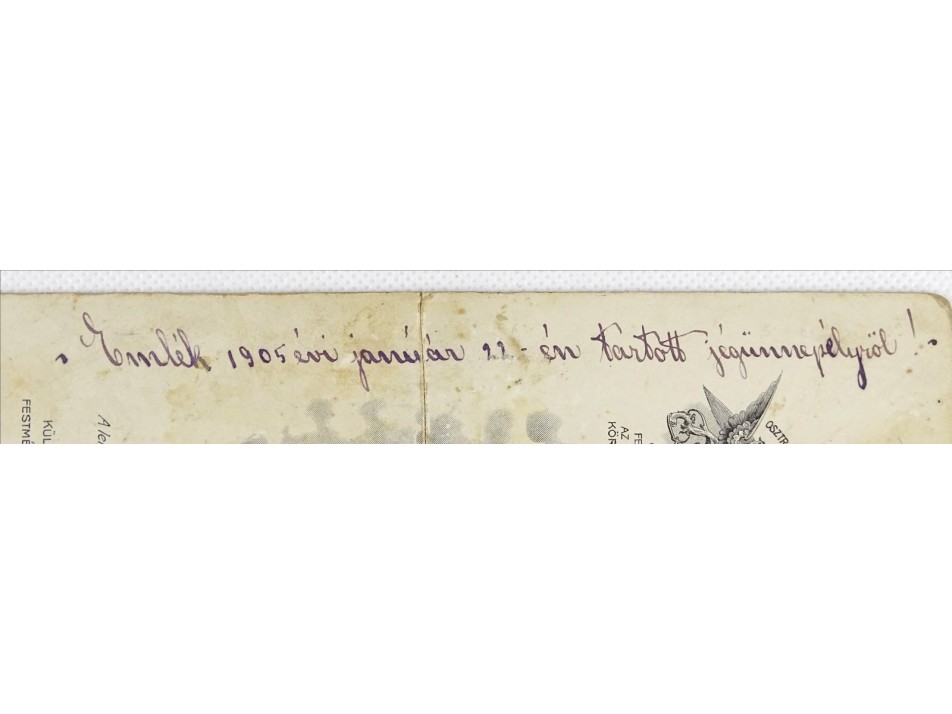 Emlék 1905 évi január 22-én tartott jégünnepélyről!
KÜL
FESTMÉ
A len
FE
AZ
KÖR
OSZTR